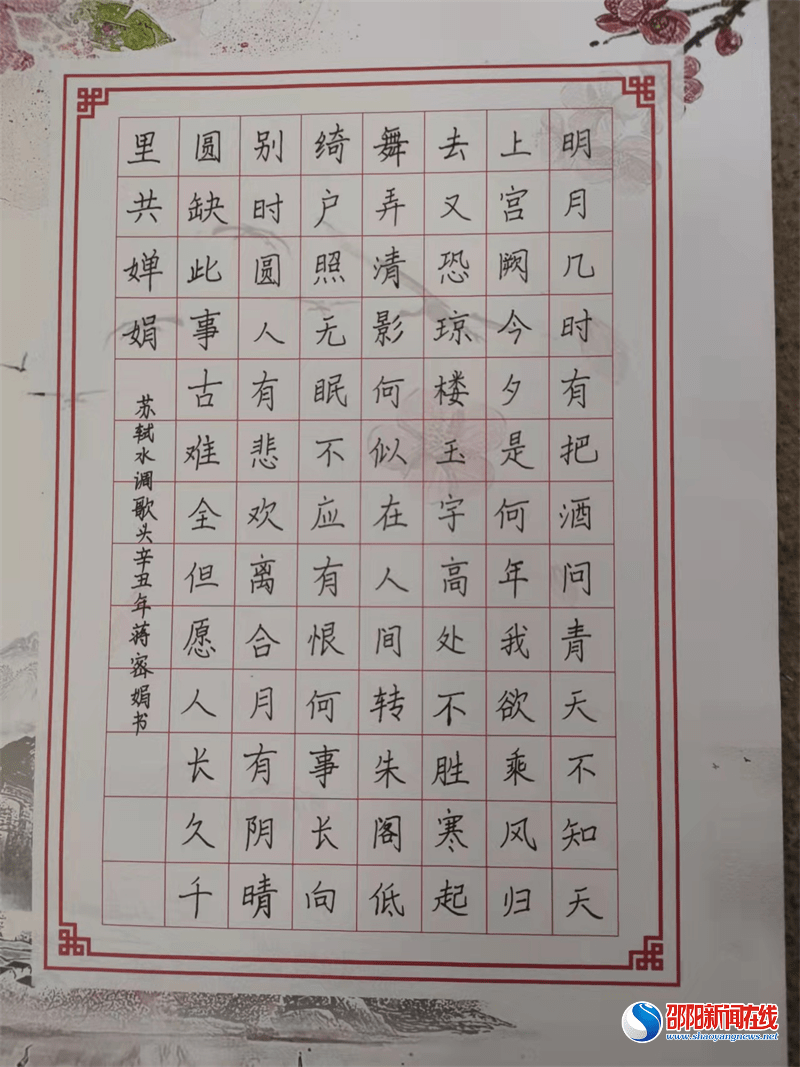 明月几时有把酒问青天不知天
上宫阙今夕是何年我欲乘风归
去又恐琼楼玉宇高处不胜寒起
舞弄清影何似在人间转朱阁低
绮户照无眠不应有恨何事长向
别时圆人有悲欢离合月有阴晴
圆缺此事古难全但愿人长久千
里共婵娟
苏轼水调歌头辛丑年蒋密娟书
邵阳新闻在线
www.shaoyangnews.net